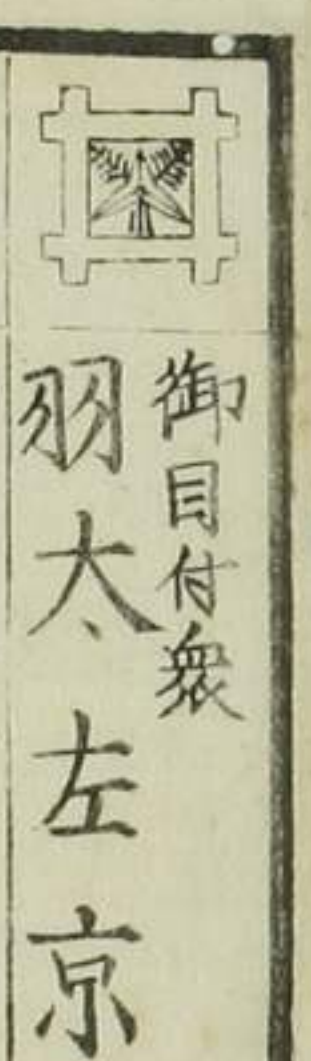 御目付衆
羽太左京